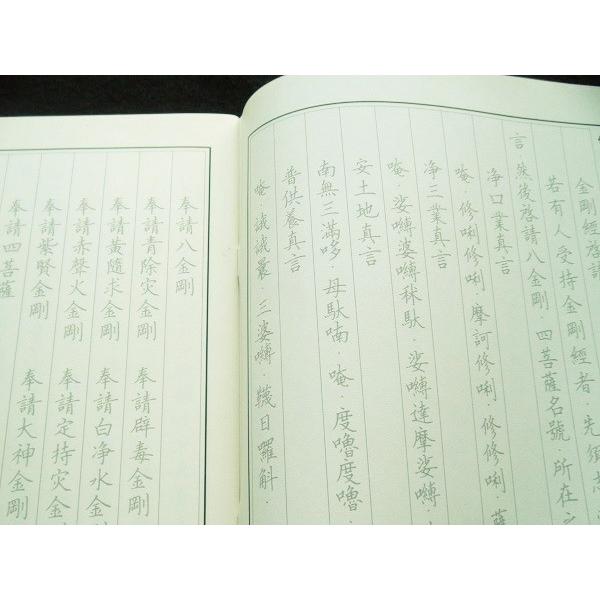 金剛經啓請
若有人受持金剛經者·先須志
言·然後啓請八金剛·四菩薩名號·所在
净口業真言
唵·修唎修唎·摩訶修唎·修修唎·薩
净三業真言
唵·娑嚩婆嚩秫馱·娑嚩達摩娑嚩·
安土地真言
南無三滿哆·母馱喃·唵·度嚕度嚕·
普供養真言
唵·誐誐曩·三婆嚩·韈日囉斛·
奉請八金剛
奉請青除灾金剛 奉請辟毒金剛
奉請黃隨求金剛 奉請白净水金
奉請赤聲火金剛 奉請定持灾金
奉請紫賢金剛 奉請大神金剛
奉請四菩薩